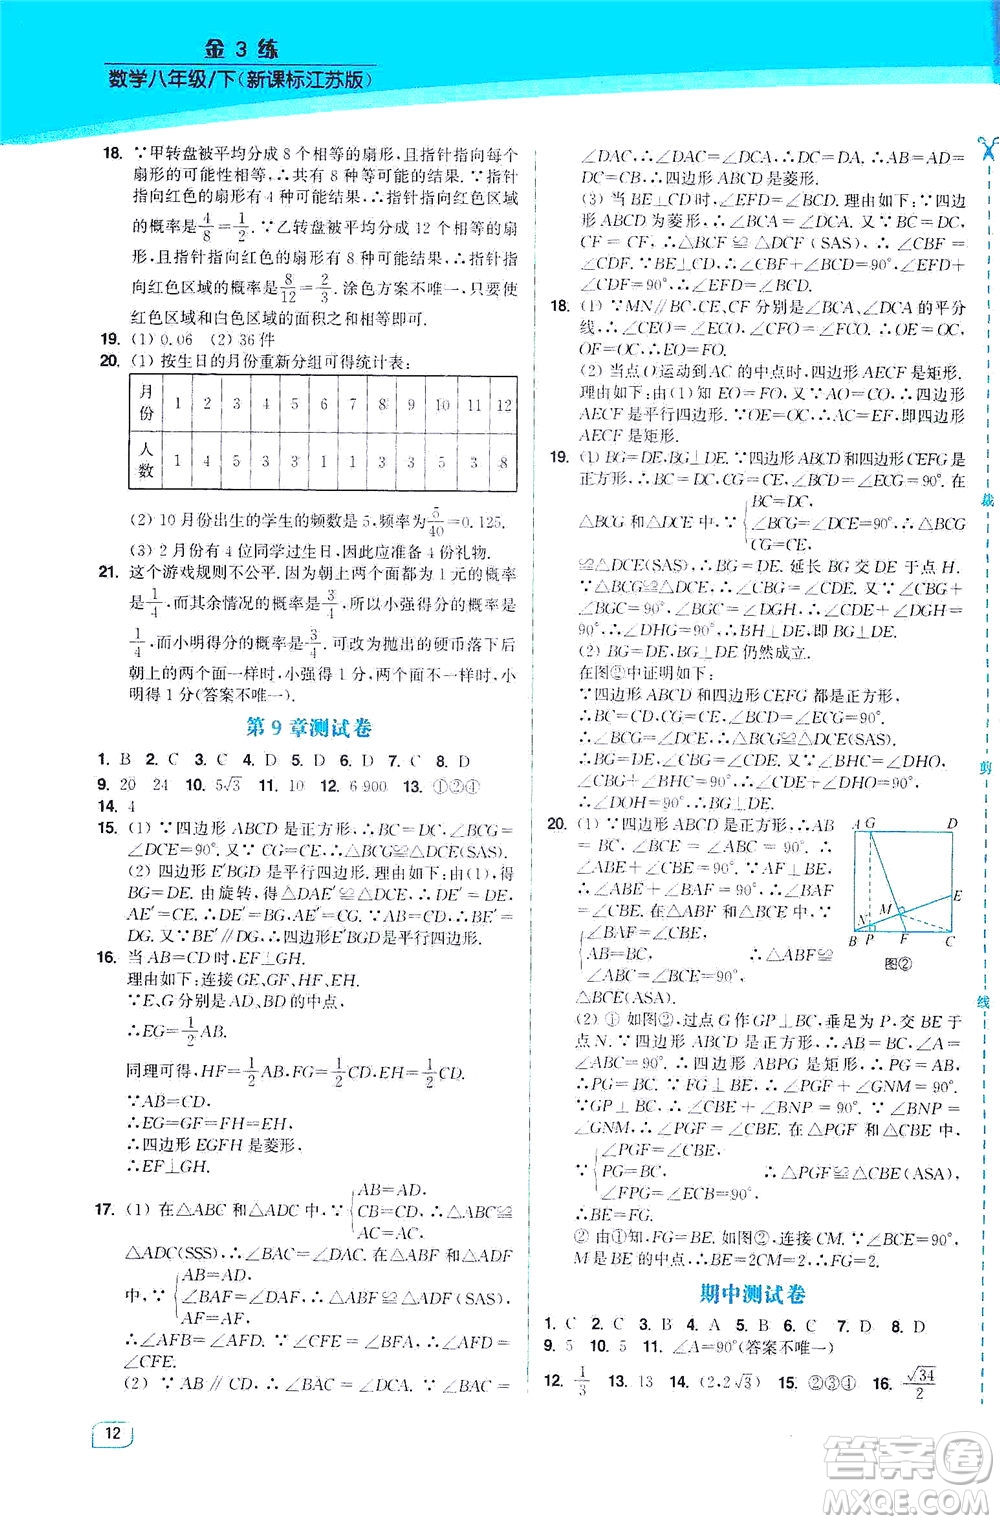 金3练
数学八年级/下(新课标江苏版)
18. ∵甲转盘被平均分成8个相等的扇形,且指针指向每个
扇形的可能性相等,∴共有8种可能的结果.∵指针
指向红色的扇形有4种可能的结果,∴指针指向红色区域
的概率是4/8=1/2.∵乙转盘被平均分成12个相等的扇
形,若指针指向红色的扇形有8种可能的结果,∴指针指
向红色区域的概率是8/12=2/3.涂色方案不唯一,只要使
红色区域和白色区域的面积之和相等即可.
19. (1) 0.06 (2) 36件
20. (1) 按生日的月份重新分组可得统计表:
月份 1 2 3 4 5 6 7 8 9 10 11 12
人数 1 4 1 3 1 2 4 2 3 5 3 8
(2) 10月份出生的学生的频数是5,频率为5/40=0.125.
(3) 2月份有4位同学过生日,因此应准备4份礼物.
21. 这个游戏规则不公平.因为抛出两个面都为1元的概率
是1/4,而其余情况的概率是3/4,所以小强得分的概率是
1/4,而小明得分的概率是3/4.可改为抛出的硬币落下后
朝上的两个面一样时,小强得1分,两个面不一样时,小
明得1分(答案不唯一).
第9章测试卷
1. B 2. C 3. C 4. D 5. D 6. C 7. C 8. D
9. 20 24 10. 5√3 11. 10 12. 6 900 13. ①②④
14. 4
15. (1) ∵四边形ABCD是正方形,∴BC=DC,∠BCG=
∠DCE=90°.又∵CG=CE,∴△BCG≌△DCE(SAS).
(2) 四边形E′BGD是平行四边形.理由如下:由(1),得
BG=DE.由旋转,得△DAE′≌△DCE,∴DE′=DE,
AE′=CE.∴DE′=BG.∵AB=CD,AE′=CG,∴BE′=
DG.又∵BE′∥DG,∴四边形E′BGD是平行四边形.
16. 当AB=CD时,EF⊥GH.
理由如下:连接GE、GF、EH、FH.
∵E、G分别是AD、BD的中点,
∴EG=1/2AB.
同理可得,HF=1/2AB,FG=1/2CD,EH=1/2CD.
∵AB=CD,
∴EG=GF=FH=EH.
∴四边形EGFH是菱形.
∴EF⊥GH.
17. (1) 在△ABC和△ADC中,∵{AB=AD,CB=CD,AC=AC.∴△ABC≌
△ADC(SSS).∴∠BAC=∠DAC.在△ABF和△ADF中,
∵{AB=AD,∠BAF=∠DAF,AF=AF.∴△ABF≌△ADF(SAS).
∴∠AFB=∠AFD.∵∠CFE=∠BFA,∴∠AFD=
∠CFE.
(2) ∵AB∥CD,∴∠BAC=∠DCA.∵∠BAC=
∠DAC,∴∠DAC=∠DCA.∴DC=DA.∴AB=CB=
CD=AD.∴四边形ABCD是菱形.
(3) 当BE⊥CD时,∠EFD=∠BCD.理由如下:∵四边
形ABCD为菱形,∴∠BCA=∠DCA.又∵BC=DC,
CF=CF,∴△BCF≌△DCF(SAS).∴∠CBF=
∠CDF.∵BE⊥CD,∴∠CBF+∠BCD=90°,∠CDF+
∠EFD=90°.∴∠EFD=∠BCD.
18. (1) ∵MN∥BC,CE、CF分别是∠BCA、∠DCA的平分
线,∴∠CEO=∠ECO,∠CFO=∠FCO.∴OE=OC,
OF=OC.∴EO=FO.
(2) 当点O运动到AC的中点时,四边形AECF是矩形.
理由如下:由(1)知EO=FO,又∵AO=CO,∴四边形
AECF是平行四边形.∵OE=OC,∴AC=EF,即四边形
AECF是矩形.
19. (1) BG=DE,BG⊥DE.∵四边形ABCD和四边形CEFG是
正方形,∴BC=DC,CG=CE,∠BCG=∠DCE=90°.在
△BCG和△DCE中,∵{BC=DC,∠BCG=∠DCE=90°,CG=CE,∴△BCG
≌△DCE(SAS).∴BG=DE.延长BG交DE于点H.
∵△BCG≌△DCE,∴∠CBG=∠CDE.∵∠CBG+
∠BGC=90°,∠BGC=∠DGH,∴∠CDE+∠DGH=
90°.∴∠DHG=90°.∴BH⊥DE,即BG⊥DE.
(2) BG=DE、BG⊥DE仍然成立.
在图②中证明如下:
∵四边形ABCD和四边形CEFG都是正方形,
∴BC=CD,CG=CE,∠BCD=∠ECG=90°.
∴∠BCG=∠DCE.∴△BCG≌△DCE(SAS).
∴BG=DE,∠CBG=∠CDE.∵∠BHC=∠DHO,
∠CBG+∠BHC=90°,∴∠CDE+∠DHO=90°.
∴∠DOH=90°.∴BG⊥DE.
20. (1) ∵四边形ABCD是正方形,∴AB
=BC,∠ABC=∠BCE=90°.
∴∠ABE+∠CBE=90°.∵AF⊥BE,
∴∠ABE+∠BAF=90°.∴∠BAF=
∠CBE.在△ABF和△BCE中,
∵{∠BAF=∠CBE,AB=BC,∠ABC=∠BCE=90°,∴△ABF≌
△BCE(ASA).
A G D
E
M
N
B P F C
图②
(2) ① 如图②,过点G作GP⊥BC,垂足为P,交BE于
点N.∵四边形ABCD是正方形,∴AB=BC,∠A=
∠ABC=90°.∴四边形ABPG是矩形.∴PG=AB.
∴PG=BC.∵FG⊥BE,∴∠PGF+∠GNM=90°.
∵GP⊥BC,∴∠CBE+∠BNP=90°.∵∠BNP=
∠GNM,∴∠PGF=∠CBE.在△PGF和△CBE中,
∵{∠PGF=∠CBE,PG=BC,∠FPG=∠ECB=90°,∴△PGF≌△CBE(ASA).
∴BE=FG.
② 由①知,FG=BE.如图②,连接CM.∵∠BCE=90°,
M是BE的中点,∴BE=2CM=2.∴FG=2.
期中测试卷
1. C 2. C 3. B 4. A 5. B 6. C 7. D 8. D
9. 5 10. 5 11. ∠A=90°(答案不唯一)
12. 1/3 13. 13 14. (2,2√3) 15. ①②③④ 16. √34/2
裁
剪
线
12
答案圈
MXQE.COM